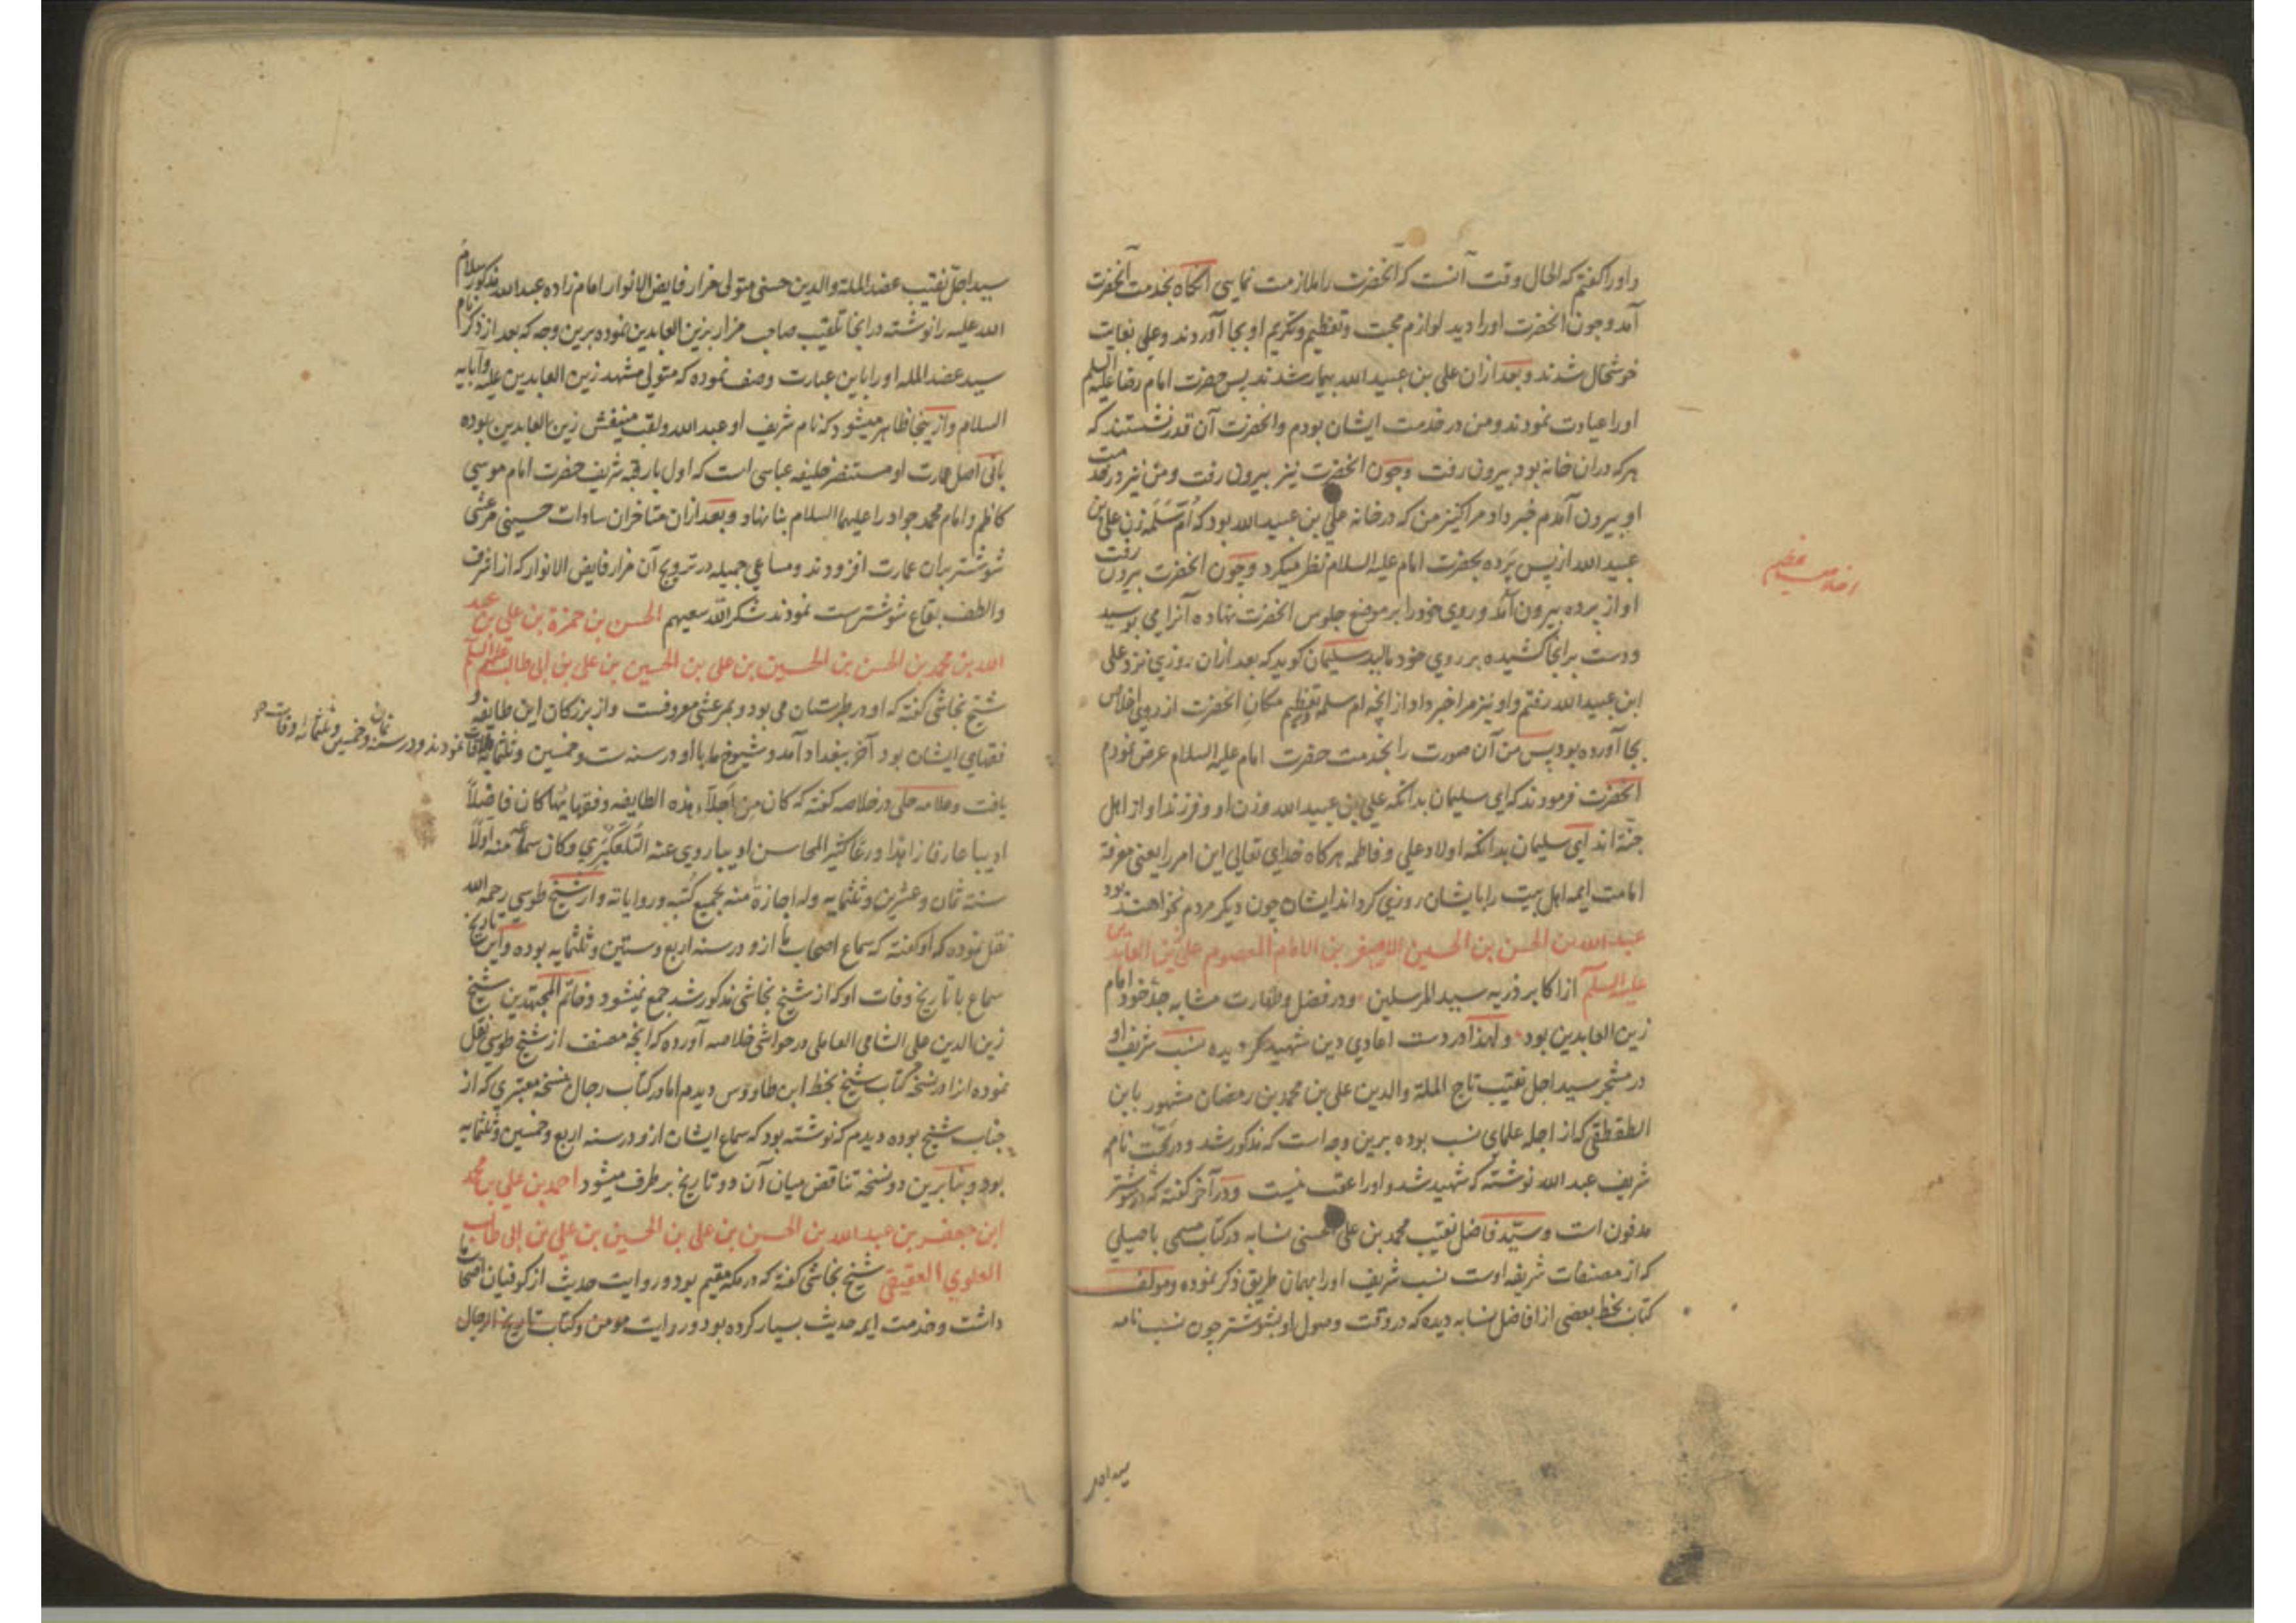 و او را گفتم که الحال وقت آنست که آنحضرت را ملازمت نمایی آنگاه بخدمت آنحضرت
آمد و چون آنحضرت او را دید لوازم محبت و تعظیم و تکریم او بجا آوردند و علی بغایت
خوشحال شدند و بعد ازان علی بن عبید الله بیمار شدند پس حضرت امام رضا علیه السلم
او را عیادت نمودند و من در خدمت ایشان بودم و آنحضرت آن قدر نشستند که
هر که دران خانه بود بیرون رفت و چون آنحضرت نیز بیرون رفت و من نیز در خدمت
او بیرون آمدم خبر داد مرا کنیز من که در خانه علی بن عبید الله بود که ام سلمه زن علی بن
عبید الله از پس پرده بحضرت امام علیه السلام نظر میکرد و چون آنحضرت بیرون رفت
او از پرده بیرون آمد و روی خود را بر موضع جلوس آنحضرت نهاده آنرا می بوسید
و دست برانجا کشیده بر روی خود مالید سلیمان گوید که بعد ازان روزی نزد علی
ابن عبید الله رفتم و او نیز مرا خبر داد از آنچه ام سلمه تعظیم مکان آنحضرت از روی اخلاص
بجا آورده بود پس من آن صورت را بخدمت حضرت امام علیه السلام عرض نمودم
آنحضرت فرمودند که ای سلیمان بدانکه علی بن عبید الله و زن او و فرزند او از اهل
جنة اند ای سلیمان بدانکه اولاد علی و فاطمه هرگاه خدای تعالی این امر را یعنی معرفة
امامت ایمه اهل بیت را بایشان روزی گرداند ایشان چون دیگر مردم نخواهند بود
عبد الله بن الحسن بن الحسین الاصغر بن الامام المعصوم علی زین العابدین
علیه السلم از اکابر ذریه سید المرسلین و در فضل و طهارت مشابه جد خود امام
زین العابدین بود و لهذا در دست اعادی دین شهید گردیده نسب شریف او
در مشجر سید اجل نقیب تاج الملة والدین علی بن محمد بن رمضان مشهور باین
الطقطقی که از اجله علمای نسب بوده برین وجه است که مذکور شد و در تحت نام
شریف عبد الله نوشته که شهید شد و او را عقب نیست و در آخر گفته که در شوشتر
مدفون است و سید فاضل نقیب محمد بن علی الحسنی نسابه در کتاب مسمی باصیلی
که از مصنفات شریفه اوست نسب شریف او را بهمان طریق ذکر نموده و مولف
کتاب بخط بعضی از افاضل نسابه دیده که در وقت وصول او بشوشتر چون نسب نامه
سید اجل
سید اجل نقیب عضد الملة والدین حسنی متولی مزار فایض الانوار امام زاده عبد الله مذکور سلام
الله علیه را نوشته در انجا تلقیب صاحب مزار بزین العابدین نموده برین وجه که بعد از ذکر نام
سید عضد المله او را باین عبارت وصف نموده که متولی مشهد زین العابدین علیه و آبایه
السلام و از ینجا ظاهر میشود که نام شریف او عبد الله و لقب منیفش زین العابدین بوده
بانی اصل عمارت او مستنصر خلیفه عباسی است که اول بار قبه شریف حضرت امام موسی
کاظم و امام محمد جواد را علیهما السلام بنا نهاد و بعد ازان متاخران سادات حسینی مرعشی
شوشتر بران عمارت افزودند و مساعی جمیله در ترویج آن مزار فایض الانوار که از اشرف
والطف بقاع شوشترست نمودند شکر الله سعیهم الحسن بن حمزة بن علی بن عبد
الله بن محمد بن الحسن بن الحسین بن علی بن الحسین بن علی بن ابی طالب علیهم السلم
شیخ نجاشی گفته که او در طبرستان می بود و بمرعشی معروفست و از بزرگان این طایفه و
فقهای ایشان بود آخر ببغداد آمد و شیوخ ما با او در سنه ست و خمسین و ثلثمایه ملاقات نمودند و در سنه ثمان و خمسین و ثلثمائه وفات
یافت و علامه حلی در خلاصه گفته که کان من اجلاء هذه الطایفه و فقهایها کان فاضلا
ادیبا عارفا زاهدا ورعا کثیر المحاسن ادیبا روی عنه التلعکبری و کان سماعه منه اولا
سنة ثمان و عشرین و ثلثمایه وله اجازة منه بجمیع کتبه و روایاته و از شیخ طوسی رحمه الله
نقل نموده که او گفته که سماع اصحاب ما ازو در سنه اربع و ستین و ثلثمایه بوده و این تاریخ
سماع با تاریخ وفات او که از شیخ نجاشی مذکور شد جمع نمیشود و خاتم المجتهدین شیخ
زین الدین علی الشامی العاملی در حواشی خلاصه آورده که آنچه مصنف از شیخ طوسی نقل
نموده از او در نسخه کتاب شیخ بخط ابن طاووس دیدم اما در کتاب رجال نسخه معتبری که از
جناب شیخ بوده دیدم که نوشته بود که سماع ایشان ازو در سنه اربع و خمسین و ثلثمایه
بود و بنابرین دو نسخه تناقض میان آن دو تاریخ بر طرف میشود احمد بن علی بن محمد
ابن جعفر بن عبد الله بن الحسین بن علی بن الحسین بن علی بن ابی طالب
العلوی العقیقی شیخ نجاشی گفته که در مکه مقیم بود و روایت حدیث از کوفیان اصحاب ما
داشت و خدمت ایمه حدیث بسیار کرده بود و روایت مومن و کتاب تاریخ الرجال